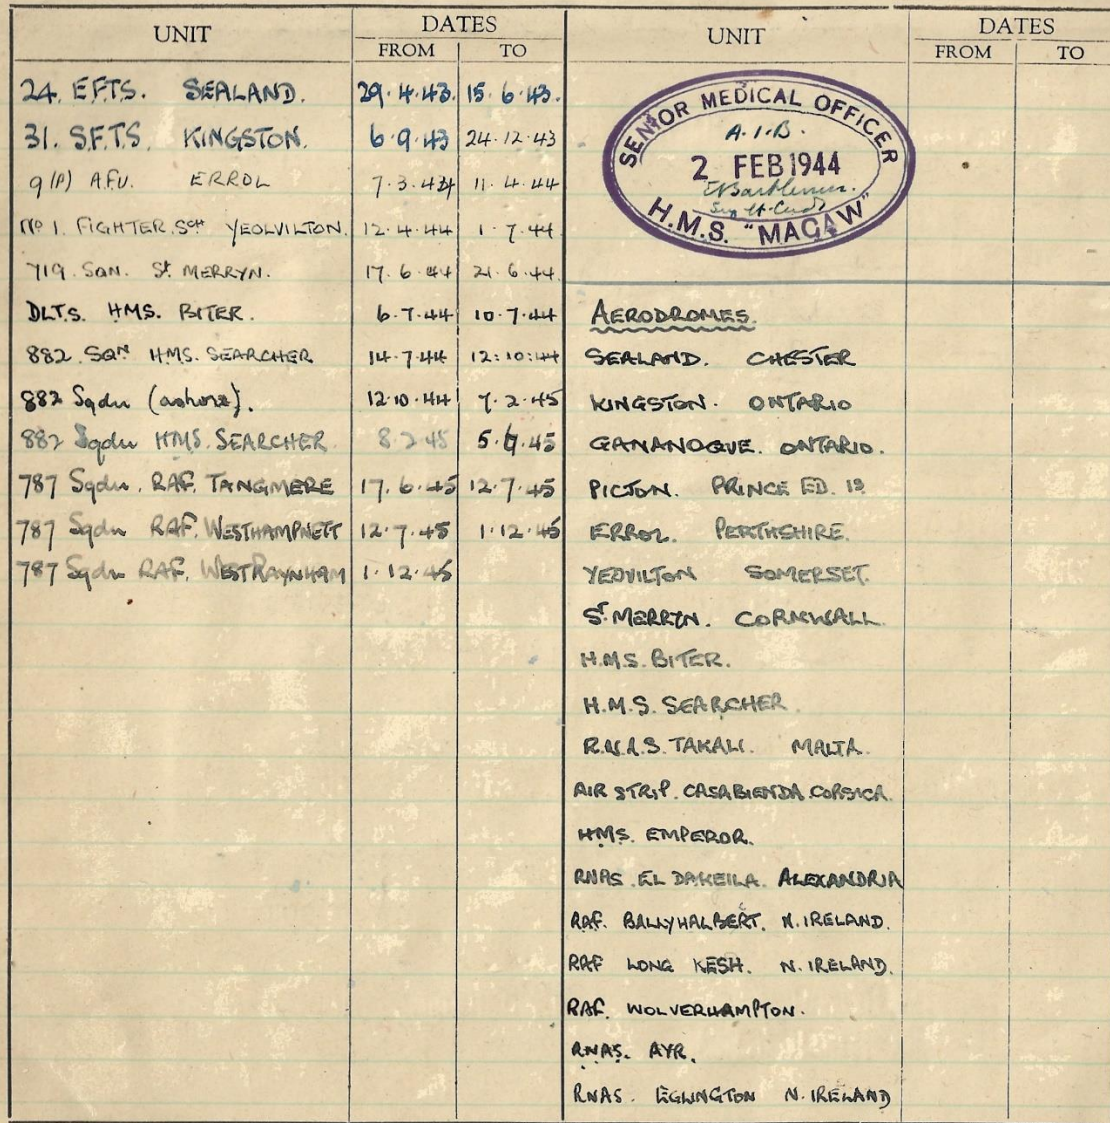 UNIT DATES
FROM TO
24. E.F.T.S. SEALAND. 29.4.43. 15.6.43.
31. S.F.T.S. KINGSTON. 6.9.43 24.12.43
9 (P) A.F.U. ERROL 7.3.44 11.4.44
No 1. FIGHTER SCH YEOLVILTON. 12.4.44 1.7.44.
719 SQN. St MERRYN. 17.6.44 21.6.44.
D.L.T.S. HMS. BITER. 6.7.44 10.7.44
882 SQN HMS. SEARCHER 14.7.44 12:10:44
882 Sqdn (ashore). 12.10.44 7.2.45
882 Sqdn HMS. SEARCHER 8.2.45 5.6.45
787 Sqdn. RAF. TANGMERE 17.6.45 12.7.45
787 Sqdn RAF. WESTHAMPNETT 12.7.45 1.12.45
787 Sqdn RAF. WEST RAYNHAM 1.12.45
UNIT DATES
FROM TO
SENIOR MEDICAL OFFICER
A.I.B.
2 FEB 1944
H.M.S. "MACAW"
AERODROMES.
SEALAND. CHESTER
KINGSTON. ONTARIO
GANANOQUE. ONTARIO.
PICTON. PRINCE ED. IS
ERROL. PERTHSHIRE.
YEOVILTON SOMERSET.
St MERRYN. CORNWALL.
H.M.S. BITER.
H.M.S. SEARCHER.
R.N.A.S. TAKALI. MALTA.
AIR STRIP. CASABIENDA. CORSICA.
HMS. EMPEROR.
RNAS. EL DAKEILA. ALEXANDRIA
RAF. BALLYHALBERT. N. IRELAND.
RAF LONG KESH. N. IRELAND.
RAF. WOLVERHAMPTON.
RNAS. AYR.
RNAS. EGLINGTON N. IRELAND